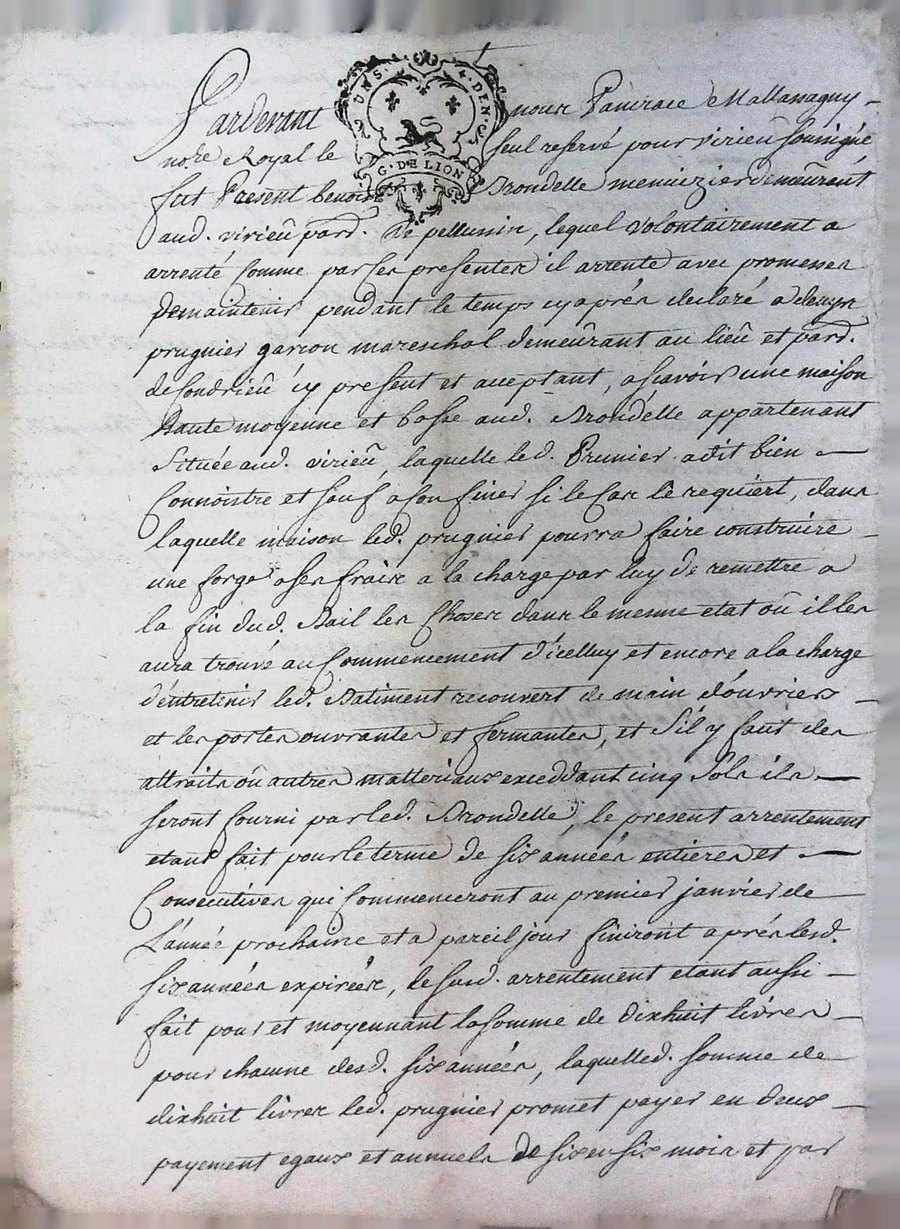 UN S. 4. DEN.
G. DE LION
Pardevant nous Pancrace Mallassagny
no.re Royal le seul reservé pour virieu soussigné
fut Present benoit Brondelle menuizier demeurent
aud. virieu parð. de pellussin, lequel volontairement a
arrenté comme par ces presentes il arrente avec promesses
de maintenir pendant le temps cy aprés declaré a
prugnier garcon mareschal demeurant au lieu et parð.
de Condrieu icy present et acceptant, ascavoir une maison
haute moyenne et basse aud. Brondelle appartenant
Située aud. virieu, laquelle led. Prunier a dit bien
Connoistre et sauf a confiner si le cas le requiert, dans
laquelle maison led. prugnier pourra faire construire
une forge a ses fraix a la charge par luy de remettre a
la fin dud. Bail les Choses dans le mesme etat où il les
aura trouvé au Commencement d'icelluy et encore a la charge
d'entretenir led. Batiment recouvert de main d'ouvriers
et les portes ouvrantes et fermantes, et s'il y faut des
attraits où autres matteriaux exceddant cinq sols ils
seront fourni par led. Brondelle, le present arrentement
etant fait pour le terme de six années entieres et
Consecutives qui Commenceront au premier janvier de
L'année prochaine et a pareil jour finiront aprés lesd.
six années expirées, le susd. arrentement etant aussi
fait pour et moyennant la somme de dixhuit livres
pour chacune desd. six années, laquelled. somme de
dixhuit livres led. prugnier promet payer en deux
payement egaux et annuels de six en six mois et par